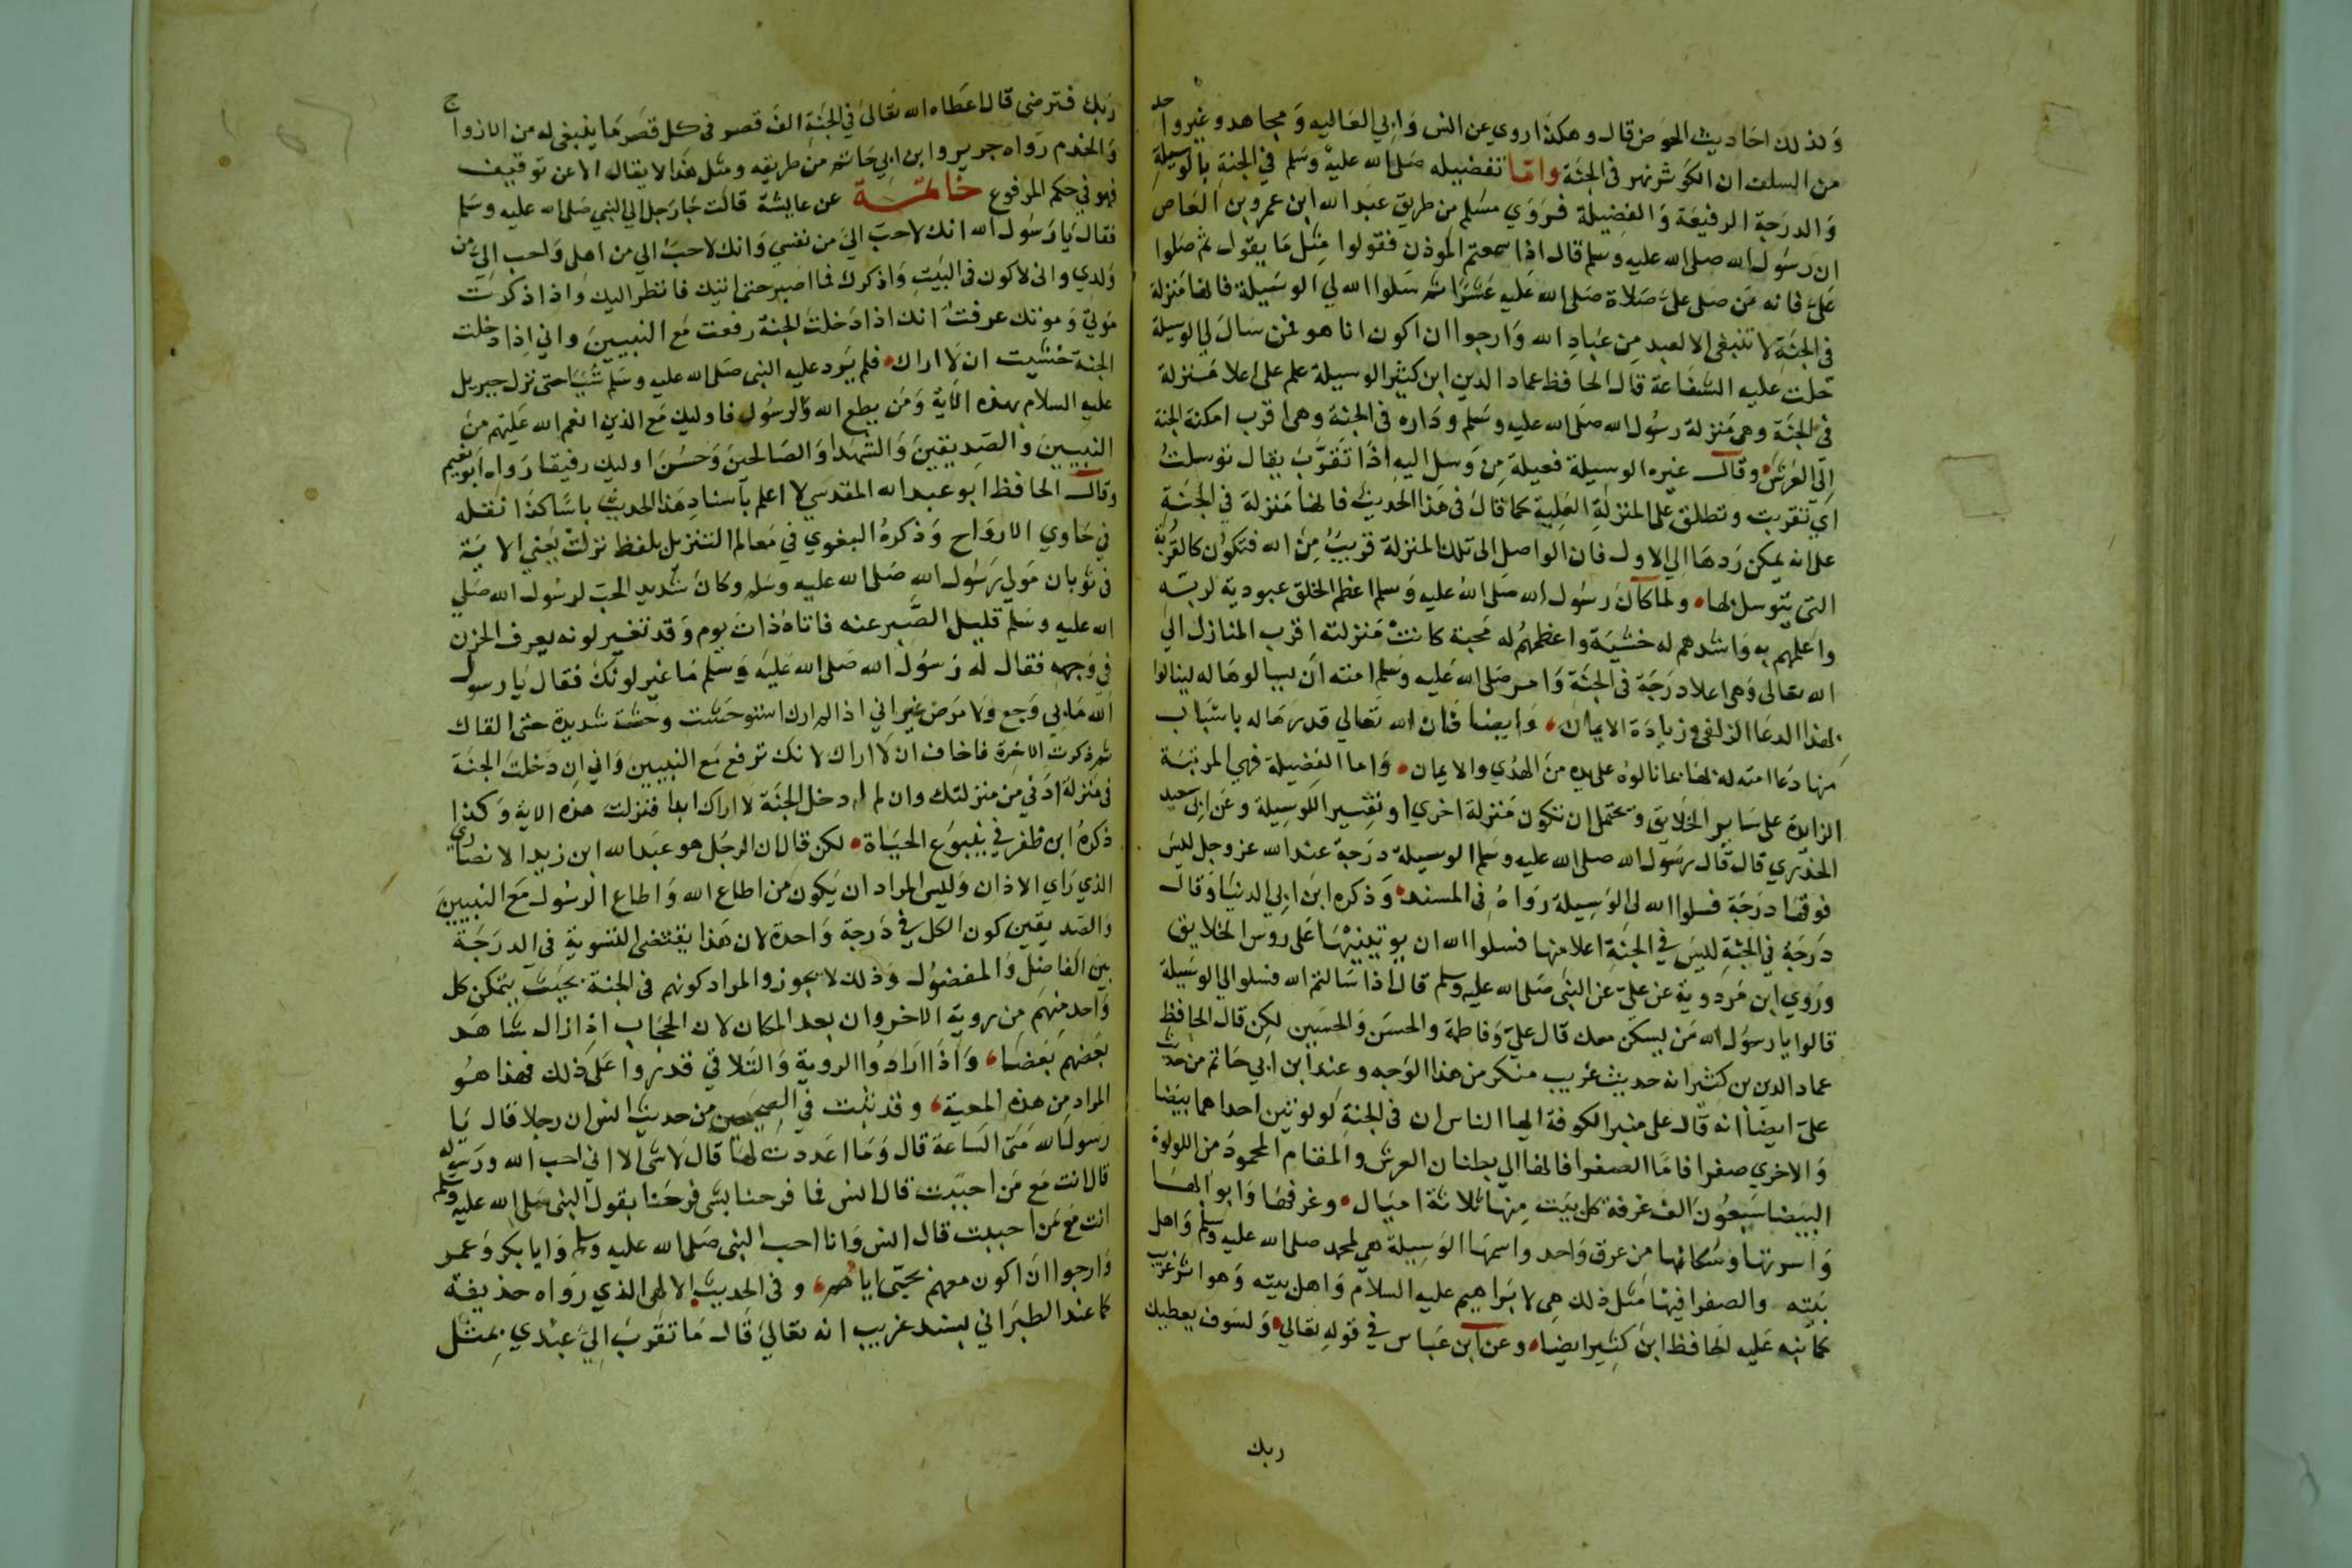 وكذلك احاديث الحوض قال وهكذا روي عن انس وابي العاليه ومجاهد وغير واحد
من السلف ان الكوثر نهر في الجنة واما تفضيله صلى الله عليه وسلم في الجنة بالوسيلة
والدرجة الرفيعة والفضيلة فروي مسلم من طريق عبد الله ابن عمرو بن العاص
ان رسول الله صلى الله عليه وسلم قال اذا سمعتم الموذن فقولوا مثل ما يقول ثم صلوا
على فانه من صلى على صلاة صلى الله عليه عشرا ثم سلوا الله لي الوسيلة فانها منزلة
في الجنة لا تنبغي الا لعبد من عباد الله وارجوا ان اكون انا هو فمن سال لي الوسيلة
حلت عليه الشفاعة قال الحافظ عماد الدين ابن كثير الوسيلة علم على اعلا منزلة
في الجنة وهي منزلة رسول الله صلى الله عليه وسلم وداره في الجنة وهي اقرب امكنة الجنة
الى العرش وقال غيره الوسيلة فعيلة من وسل اليه اذا تقرب يقال توسلت
اي تقربت وتطلق على المنزلة العلية كما قال في هذا الحديث فانها منزلة في الجنة
على انه يمكن ردها الي الاول فان الواصل الى تلك المنزلة قريب من الله فتكون كالقربة
التي يتوسل بها ولما كان رسول الله صلى الله عليه وسلم اعظم الخلق عبودية لربه
واعلمهم به واشدهم له خشية واعظمهم له محبة كانت منزلته اقرب المنازل الي
الله تعالى وهي اعلا درجة في الجنة وامر صلى الله عليه وسلم امته ان يسالوها له لينالوا
بهذا الدعا الزلفي وزيادة الايمان وايضا فان الله تعالي قدرها له باسباب
منها دعا امته له بها بما نالوه على يده من الهدي والايمان واما الفضيلة فهي المرتبة
الزايدة على ساير الخلايق ويحتمل ان تكون منزلة اخري او تفسير الوسيلة وعن ابي سعيد
الخدري قال قال رسول الله صلى الله عليه وسلم الوسيلة درجة عند الله عز وجل ليس
فوقها درجة فسلوا الله لى الوسيلة رواه في المسند وذكره ابن ابي الدنيا وقال
درجة في الجنة ليس في الجنة اعلا منها فسلوا الله ان يوتينيها على روس الخلايق
وروي ابن مردوية عن علي عن النبي صلى الله عليه وسلم قال اذا سالتم الله فسلوا لي الوسيلة
قالوا يا رسول الله من يسكن معك قال علي وفاطمة والحسن والحسين لكن قال الحافظ
عماد الدين بن كثير انه حديث غريب منكر من هذا الوجه وعند ابن ابي حاتم من حديث
على ايضا انه قال على منبر الكوفة ايها الناس ان في الجنة لولوتين احداهما بيضا
والاخري صفرا فاما الصفرا فانها الي بطنان العرش والمقام المحمود من اللولوة
البيضا سبعون الف غرفة كل بيت منها ثلاثة اميال وغرفها وابوابها
واسرتها وسكانها من عرق واحد واسمها الوسيلة هي لمحمد صلى الله عليه وسلم واهل
بيته والصفرا فيها مثل ذلك هي لابراهيم عليه السلام واهل بيته وهو اثر غريب
كما نبه عليه الحافظ ابن كثير ايضا وعن ابن عباس في قوله تعالي ولسوف يعطيك
ربك
ربك فترضى قال اعطاه الله تعالى في الجنة الف قصر في كل قصر ما ينبغي له من الازواج
والخدم رواه جرير وابن ابي حاتم من طريقه ومثل هذا لا يقال الا عن توقيف
فهو في حكم المرفوع خاتمة عن عايشة قالت جا رجل الي النبي صلى الله عليه وسلم
فقال يا رسول الله انك لاحب الي من نفسي وانك لاحب الي من اهلي واحب الي من
ولدي واني لاكون في البيت واذكرك فما اصبر حتى اتيك فانظر اليك واذا ذكرت
موتي وموتك عرفت انك اذا دخلت الجنة رفعت مع النبيين واني اذا دخلت
الجنة خشيت ان لا اراك فلم يرد عليه النبي صلى الله عليه وسلم شيا حتى نزل جبريل
عليه السلام بهذه الاية ومن يطع الله والرسول فاوليك مع الذين انعم الله عليهم من
النبيين والصديقين والشهدا والصالحين وحسن اوليك رفيقا رواه ابو نعيم
وقال الحافظ ابو عبد الله المقدسي لا اعلم باسناد هذا الحديث باسا كذا نقله
في حاوي الارواح وذكره البغوي في معالم التنزيل بلفظ نزلت يعني الاية
في ثوبان مولي رسول الله صلى الله عليه وسلم وكان شديد الحب لرسول الله صلي
الله عليه وسلم قليل الصبر عنه فاتاه ذات يوم وقد تغير لونه يعرف الحزن
في وجهه فقال له رسول الله صلى الله عليه وسلم ما غير لونك فقال يا رسول
الله ما بي وجع ولا مرض غير اني اذا لم ارك استوحشت وحشة شديدة حتى القاك
ثم ذكرت الاخرة فاخاف ان لا اراك لانك ترفع مع النبيين واني ان دخلت الجنة
في منزلة ادني من منزلتك وان لم ادخل الجنة لا اراك ابدا فنزلت هذه الاية وكذا
ذكره ابن ظفر في ينبوع الحياة لكن قال ان الرجل هو عبد الله ابن زيد الانصاري
الذي راي الاذان وليس المراد ان يكون من اطاع الله واطاع الرسول مع النبيين
والصديقين كون الكل في درجة واحدة لان هذا يقتضى التسوية في الدرجة
بين الفاضل والمفضول وذلك لا يجوز والمراد كونهم في الجنة بحيث يتمكن كل
واحد منهم من روية الاخر وان بعد المكان لان الحجاب اذا زال شاهد
بعضهم بعضا واذا ارادوا الروية والتلاقي قدروا على ذلك فهذا هو
المراد من هذه المعية وقد ثبت في الصحيحين من حديث انس ان رجلا قال يا
رسول الله متى الساعة قال وما اعددت لها قال لا شى الا اني احب الله ورسوله
قال انت مع من احببت قال انس فما فرحنا بشى فرحنا بقول النبي صلى الله عليه وسلم
انت مع من احببت قال انس وانا احب النبي صلى الله عليه وسلم وابا بكر وعمر
وارجوا ان اكون معهم بحبى اياهم وفي الحديث الالهي الذي رواه حذيفة
كما عند الطبراني بسند غريب انه تعالي قال ما تقرب الي عبدي بمثل